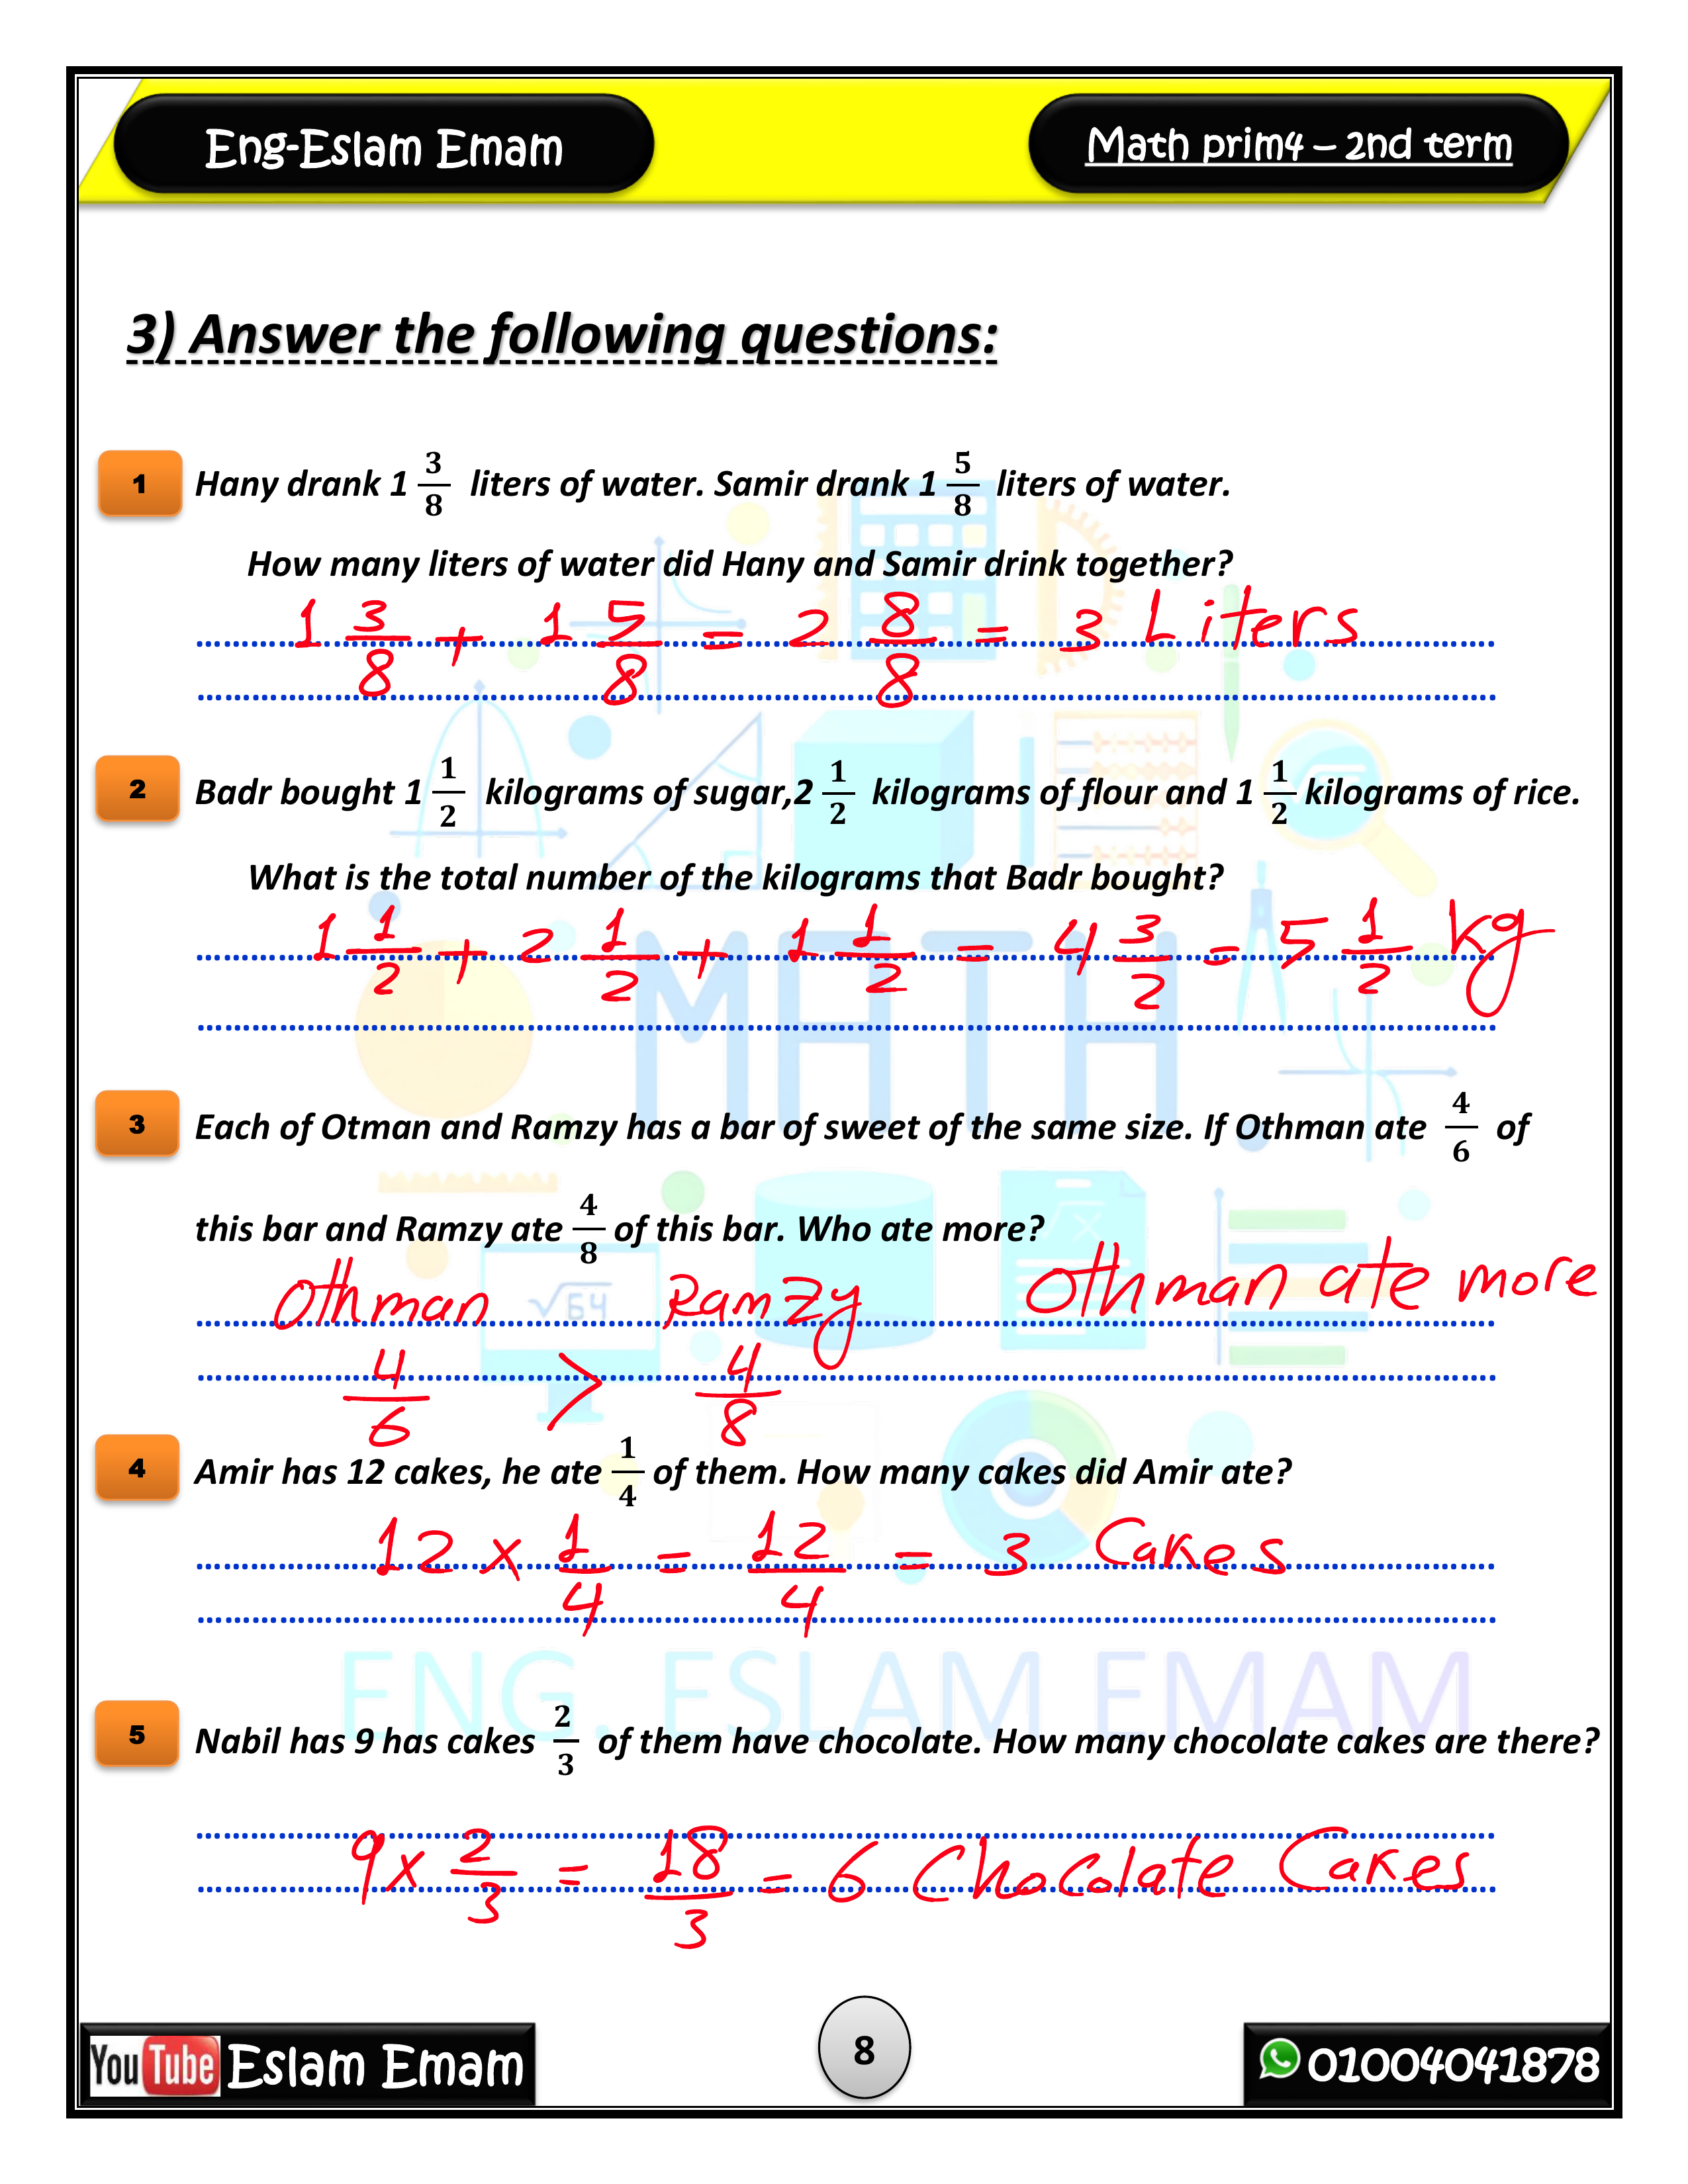 Eng-Eslam Emam
Math prim4 – 2nd term
3) Answer the following questions:
1 Hany drank 1 3/8 liters of water. Samir drank 1 5/8 liters of water.
How many liters of water did Hany and Samir drink together?
1 3/8 + 1 5/8 = 2 8/8 = 3 Liters
2 Badr bought 1 1/2 kilograms of sugar,2 1/2 kilograms of flour and 1 1/2 kilograms of rice.
What is the total number of the kilograms that Badr bought?
1 1/2 + 2 1/2 + 1 1/2 = 4 3/2 = 5 1/2 kg
MATH
3 Each of Otman and Ramzy has a bar of sweet of the same size. If Othman ate 4/6 of
this bar and Ramzy ate 4/8 of this bar. Who ate more?
Othman Ramzy Othman ate more
√64
4/6 > 4/8
4 Amir has 12 cakes, he ate 1/4 of them. How many cakes did Amir ate?
12 × 1/4 = 12/4 = 3 Cakes
ENG. ESLAM EMAM
5 Nabil has 9 has cakes 2/3 of them have chocolate. How many chocolate cakes are there?
9 × 2/3 = 18/3 = 6 Chocolate Cakes
YouTube Eslam Emam
8
01004041878